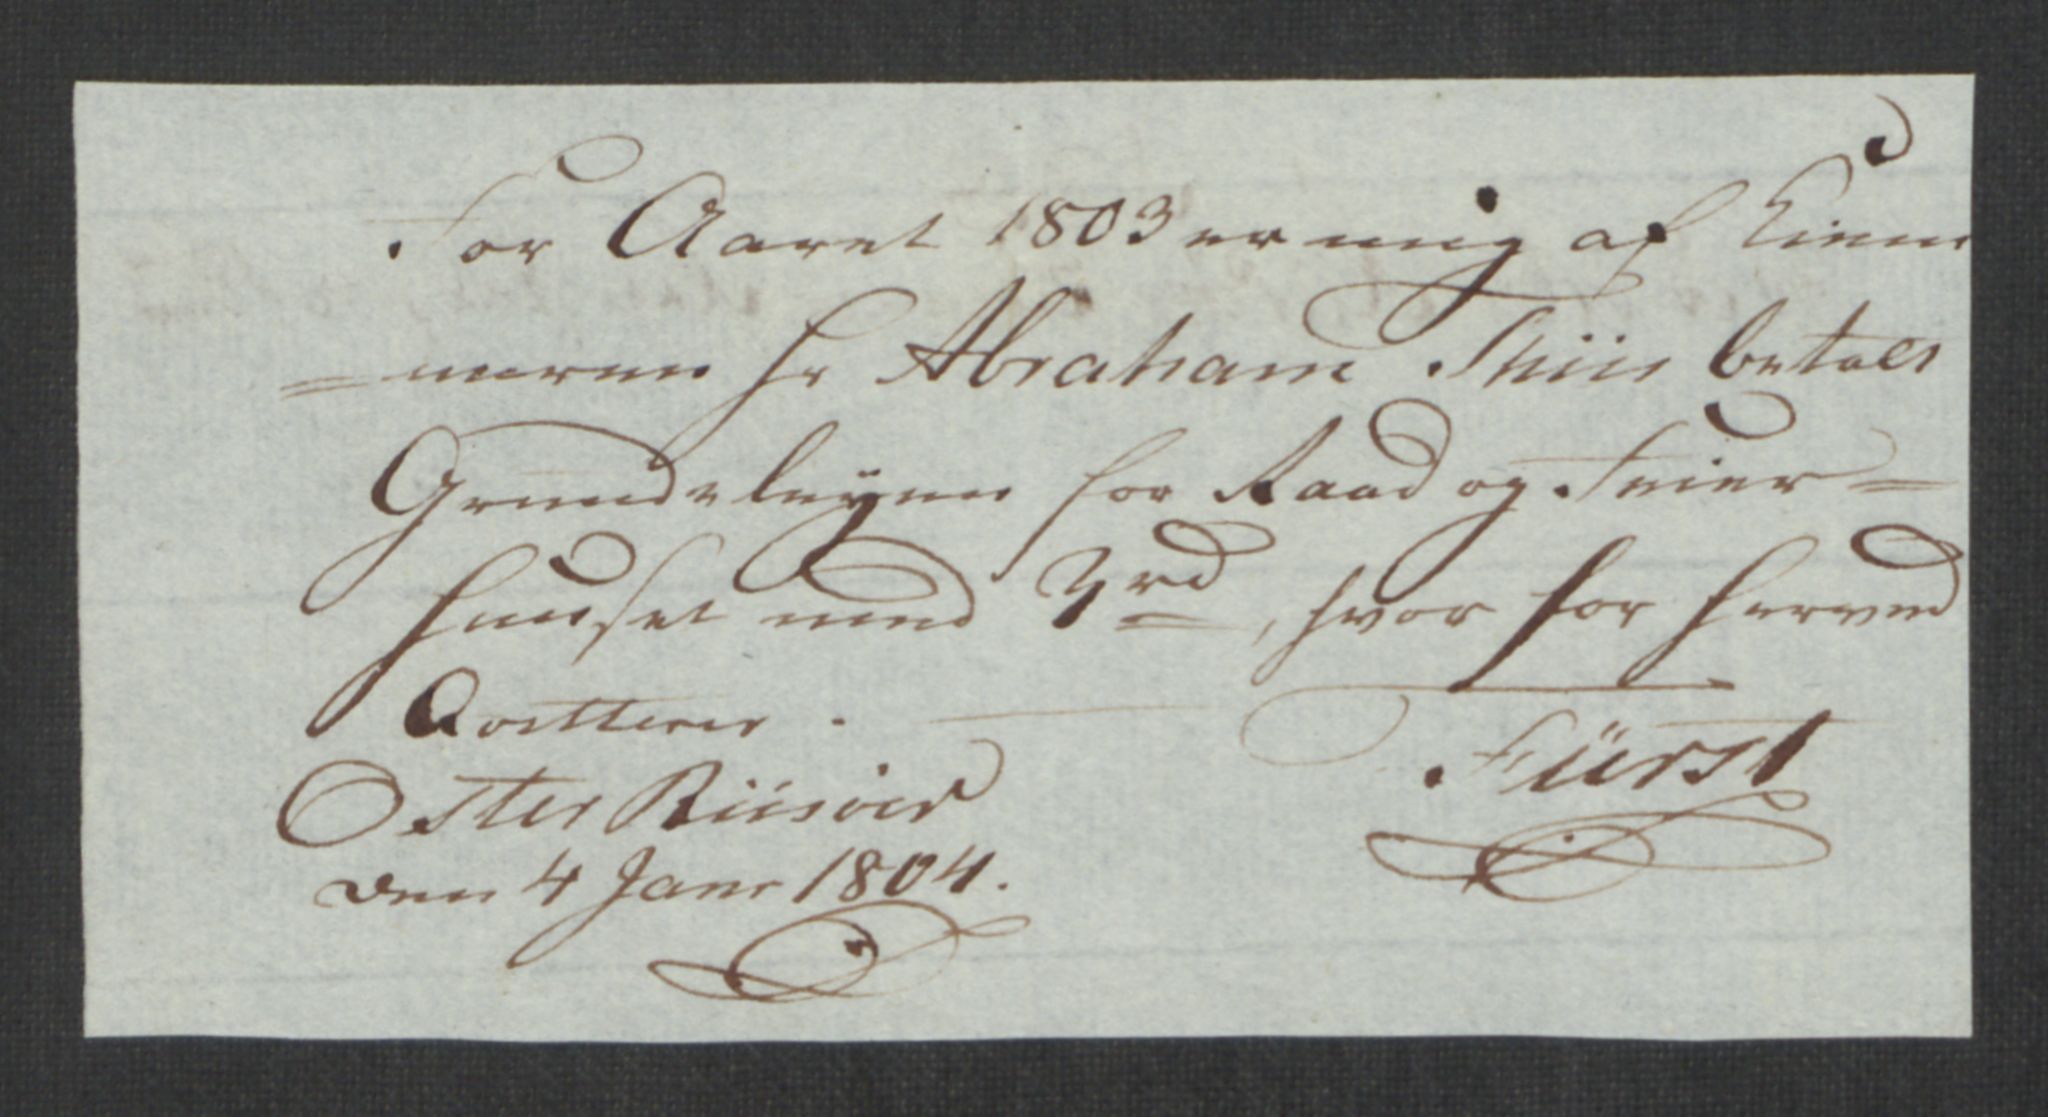 For Aaret 1803 er mig af Kiem
= neren Hr Abraham Thiis betalt
Grundeleyen for Raad og Feier =
huuset med 3rd, hvor for herved
Qvitterer.
Øster Riisøer
den 4 Janr 1804.
Fürst